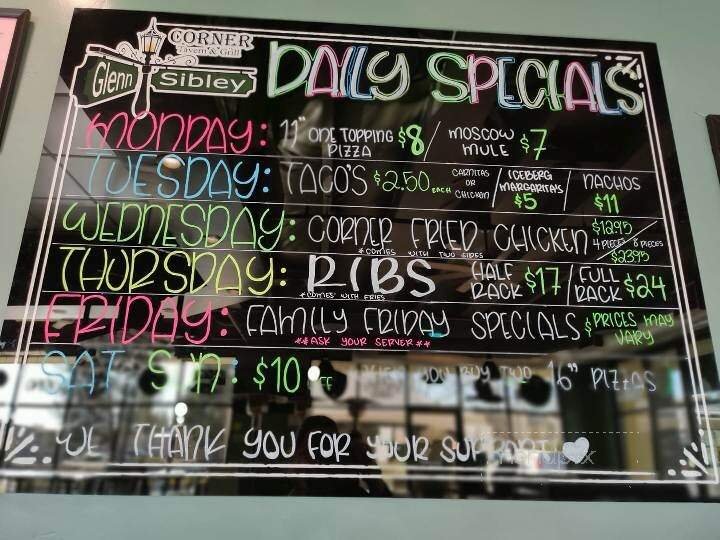 CORNER
Tavern & Grill
Glenn
Sibley
DAILY SPECIALS
MONDAY: 11" ONE TOPPING PIZZA $8 / MOSCOW MULE $7
TUESDAY: TACO'S $2.50 EACH CARNITAS OR CHICKEN / ICEBERG MARGARITAS $5 / NACHOS $11
WEDNESDAY: CORNER FRIED CHICKEN $12.95 4 PIECES / 8 PIECES $23.95
*COMES WITH TWO SIDES
THURSDAY: RIBS HALF RACK $17 / FULL RACK $24
*COMES WITH FRIES
FRIDAY: FAMILY FRIDAY SPECIALS $ PRICES MAY VARY
**ASK YOUR SERVER**
SAT SUN: $10 OFF WHEN YOU BUY TWO 16" PIZZAS
WE THANK YOU FOR YOUR SUPPORT